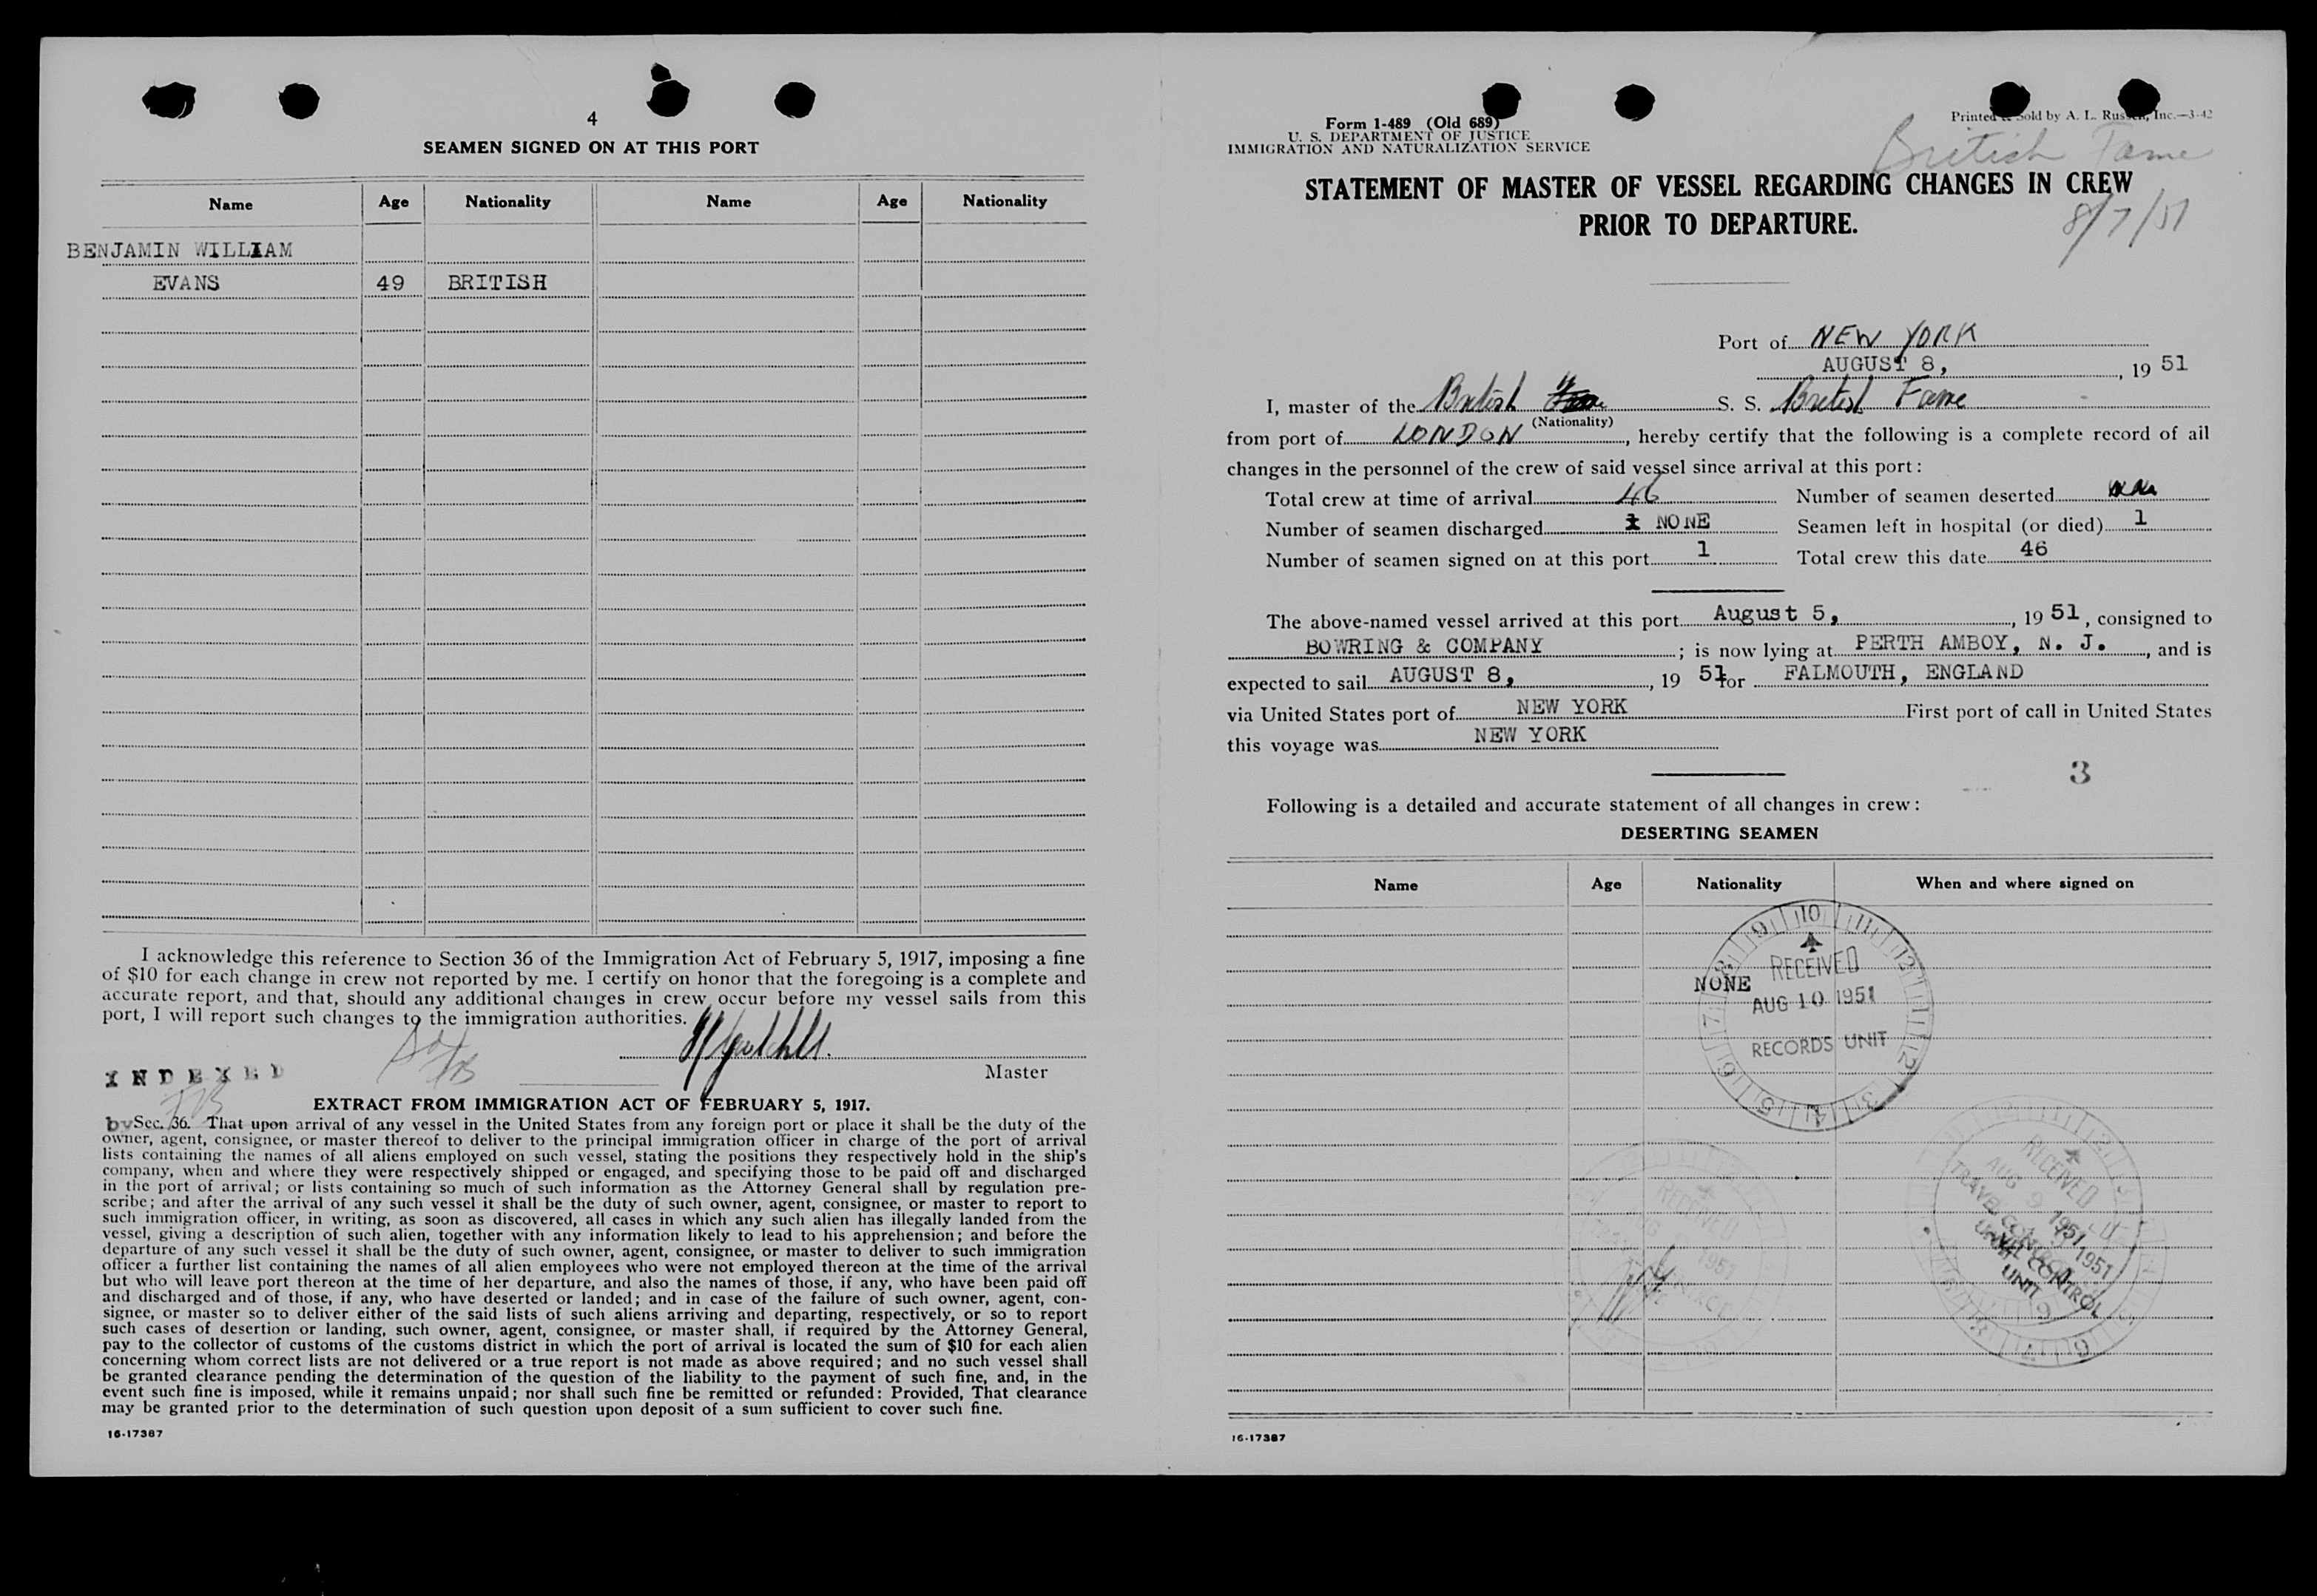 4
SEAMEN SIGNED ON AT THIS PORT
Name Age Nationality Name Age Nationality
BENJAMIN WILLIAM
EVANS 49 BRITISH
I acknowledge this reference to Section 36 of the Immigration Act of February 5, 1917, imposing a fine
of $10 for each change in crew not reported by me. I certify on honor that the foregoing is a complete and
accurate report, and that, should any additional changes in crew occur before my vessel sails from this
port, I will report such changes to the immigration authorities.
Master
INDEXED
EXTRACT FROM IMMIGRATION ACT OF FEBRUARY 5, 1917.
by Sec. 36. That upon arrival of any vessel in the United States from any foreign port or place it shall be the duty of the
owner, agent, consignee, or master thereof to deliver to the principal immigration officer in charge of the port of arrival
lists containing the names of all aliens employed on such vessel, stating the positions they respectively hold in the ship's
company, when and where they were respectively shipped or engaged, and specifying those to be paid off and discharged
in the port of arrival; or lists containing so much of such information as the Attorney General shall by regulation pre-
scribe; and after the arrival of any such vessel it shall be the duty of such owner, agent, consignee, or master to report to
such immigration officer, in writing, as soon as discovered, all cases in which any such alien has illegally landed from the
vessel, giving a description of such alien, together with any information likely to lead to his apprehension; and before the
departure of any such vessel it shall be the duty of such owner, agent, consignee, or master to deliver to such immigration
officer a further list containing the names of all alien employees who were not employed thereon at the time of the arrival
but who will leave port thereon at the time of her departure, and also the names of those, if any, who have been paid off
and discharged and of those, if any, who have deserted or landed; and in case of the failure of such owner, agent, con-
signee, or master so to deliver either of the said lists of such aliens arriving and departing, respectively, or so to report
such cases of desertion or landing, such owner, agent, consignee, or master shall, if required by the Attorney General,
pay to the collector of customs of the customs district in which the port of arrival is located the sum of $10 for each alien
concerning whom correct lists are not delivered or a true report is not made as above required; and no such vessel shall
be granted clearance pending the determination of the question of the liability to the payment of such fine, and, in the
event such fine is imposed, while it remains unpaid; nor shall such fine be remitted or refunded: Provided, That clearance
may be granted prior to the determination of such question upon deposit of a sum sufficient to cover such fine.
16-17387
Form 1-489 (Old 689)
U. S. DEPARTMENT OF JUSTICE
IMMIGRATION AND NATURALIZATION SERVICE
Printed & Sold by A. L. Russell, Inc.—3-42
British Fame
STATEMENT OF MASTER OF VESSEL REGARDING CHANGES IN CREW
PRIOR TO DEPARTURE.
8/7/51
Port of NEW YORK
AUGUST 8, , 19 51
I, master of the British S. S. British Fame
(Nationality)
from port of LONDON, hereby certify that the following is a complete record of all
changes in the personnel of the crew of said vessel since arrival at this port:
Total crew at time of arrival 46 Number of seamen deserted
Number of seamen discharged NONE Seamen left in hospital (or died) 1
Number of seamen signed on at this port 1 Total crew this date 46
The above-named vessel arrived at this port August 5, , 19 51, consigned to
BOWRING & COMPANY ; is now lying at PERTH AMBOY, N. J. , and is
expected to sail AUGUST 8, , 19 51 for FALMOUTH, ENGLAND
via United States port of NEW YORK First port of call in United States
this voyage was NEW YORK
3
Following is a detailed and accurate statement of all changes in crew:
DESERTING SEAMEN
Name Age Nationality When and where signed on
NONE
RECEIVED
AUG 10 1951
RECORDS UNIT
RECEIVED
AUG 9 1951
TRAVEL CONTROL
UNIT
16-17387